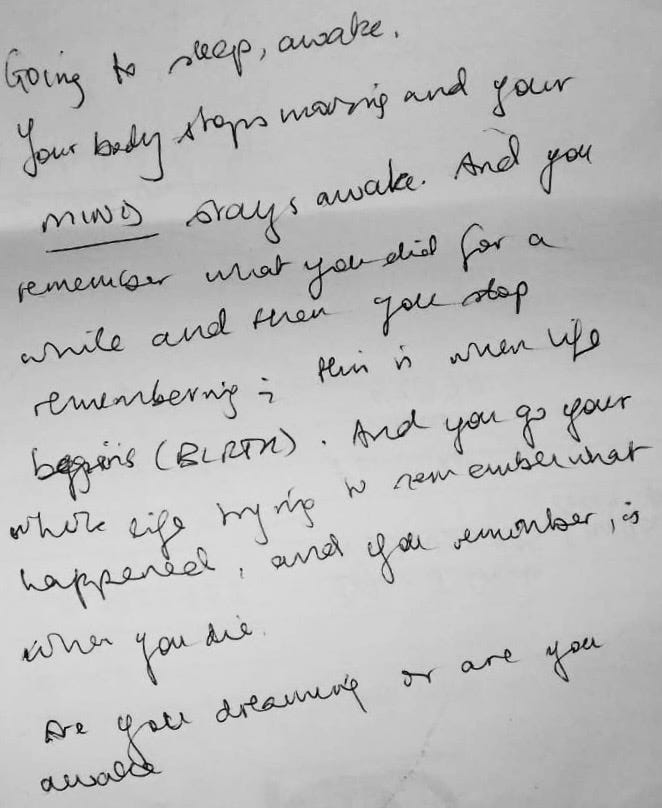 Going to sleep, awake.
Your body stops moving and your
MIND stays awake. And you
remember what you did for a
while and then you stop
remembering; this is when life
begins (BIRTH). And you go your
whole life trying to remember what
happened, and you remember, is
when you die.
Are you dreaming or are you
awake